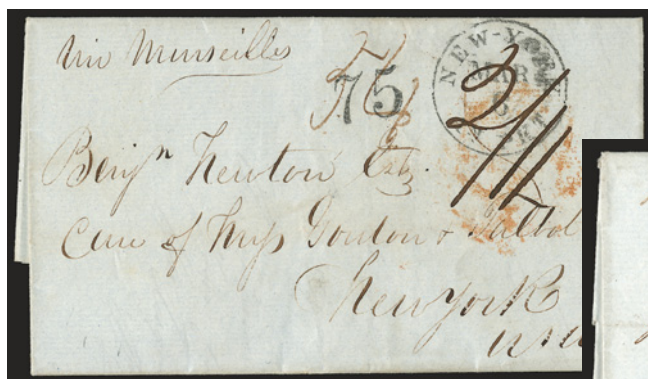 Via Marseilles
75
NEW-YORK
MAR
PKT
2/11
Benjn Newton Esq.
Care of Messrs Gordon & Talbot
New York
USA